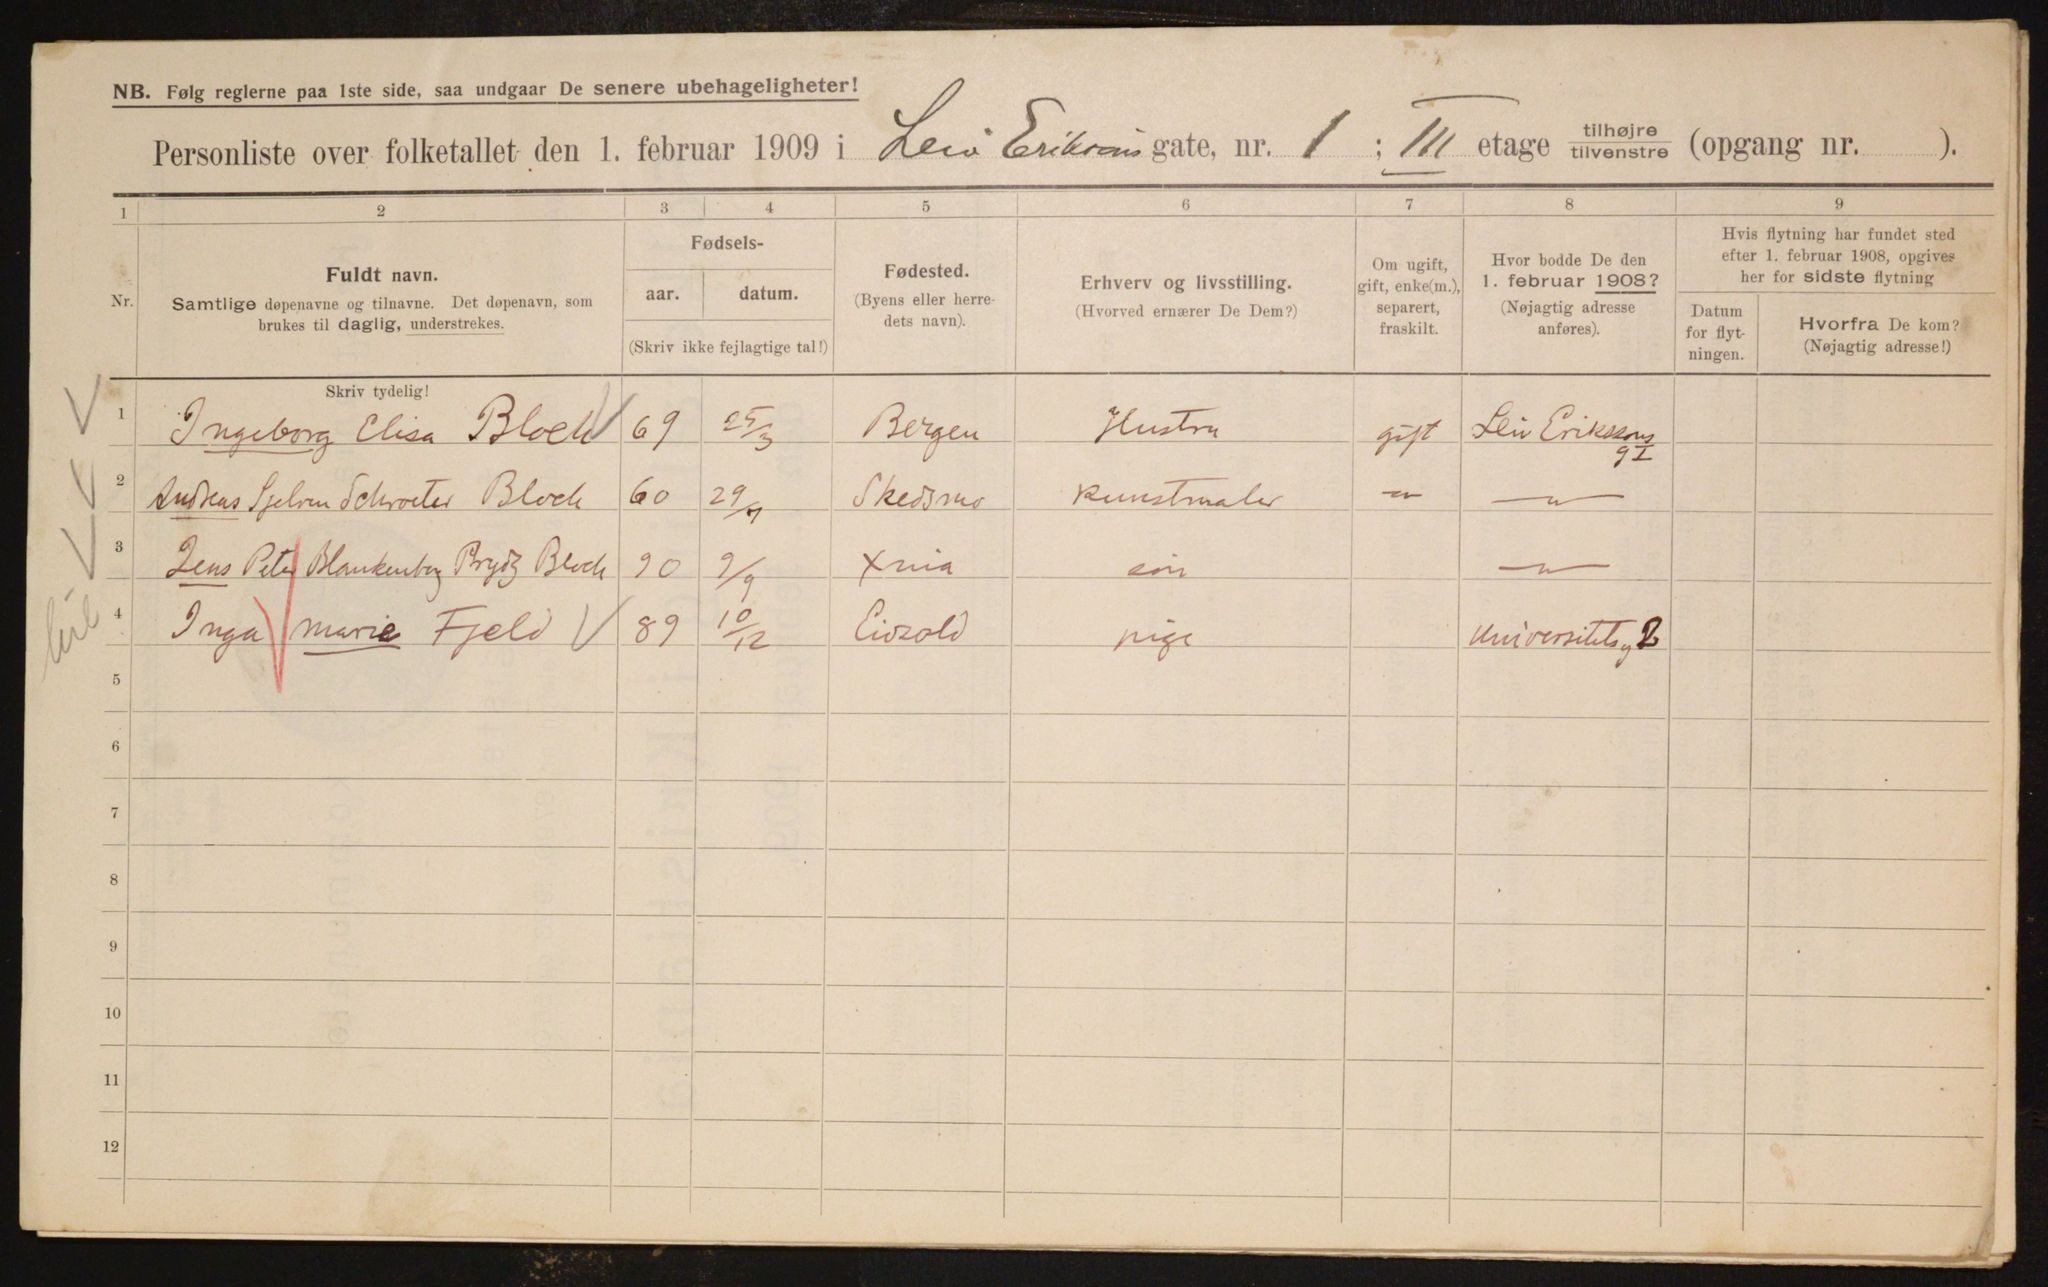 NB. Følg reglerne paa 1ste side, saa undgaar De senere ubehageligheter!
Personliste over folketallet den 1. februar 1909 i Leiv Eriksons gate, nr. 1 ; III etage tilhøjre tilvenstre (opgang nr. ).
1 2 3 4 5 6 7 8 9
Nr.
Fuldt navn.
Samtlige døpenavne og tilnavne. Det døpenavn, som
brukes til daglig, understrekes.
Skriv tydelig!
Fødsels-
aar. datum.
(Skriv ikke fejlagtige tal!)
Fødested.
(Byens eller herre-
dets navn).
Erhverv og livsstilling.
(Hvorved ernærer De Dem?)
Om ugift,
gift, enke(m.),
separert,
fraskilt.
Hvor bodde De den
1. februar 1908?
(Nøjagtig adresse
anføres).
Hvis flytning har fundet sted
efter 1. februar 1908, opgives
her for sidste flytning
Datum
for flyt-
ningen.
Hvorfra De kom?
(Nøjagtig adresse!)
1 Ingeborg Elisa Bloch 69 25/3 Bergen Hustru gift Leiv Erikssons
g I
2 Andreas Schroeter Bloch 60 29/7 Skedsmo Kunstmaler — " — — " —
3 Jens Peter Blankenborg Prydz Bloch 90 9/9 Xnia søn — " —
4 Inga Marie Fjeld 89 10/12 Eidsvold pige Universitetsg 2
5
6
7
8
9
10
11
12